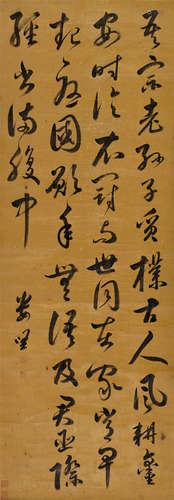 吾宗老孫子質樸古人風耕鑿
安時論衣冠與世同在家常早
起憂國願年豐語及君臣際
經書滿腹中
婁堅